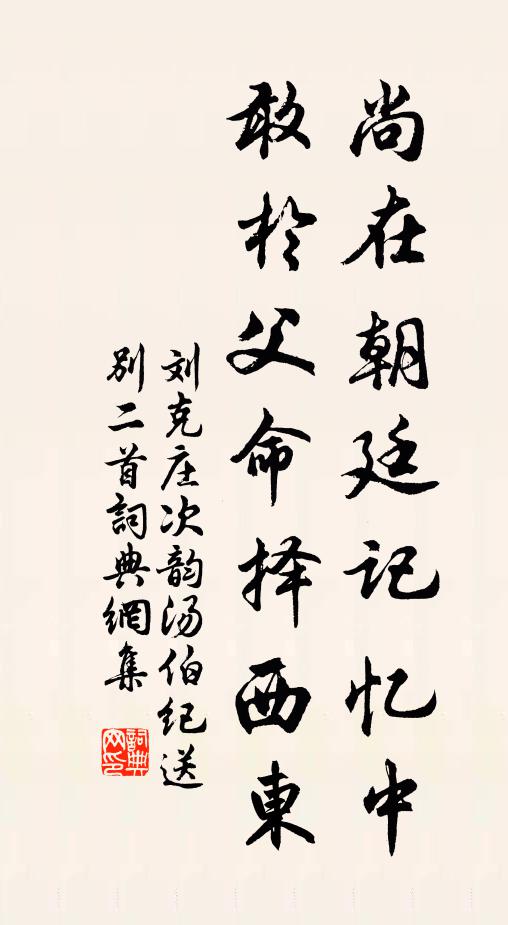 尚在朝廷记忆中
敢於父命择西東
刘克庄次韵汤伯纪送
别二首詞典網集
詞典网印